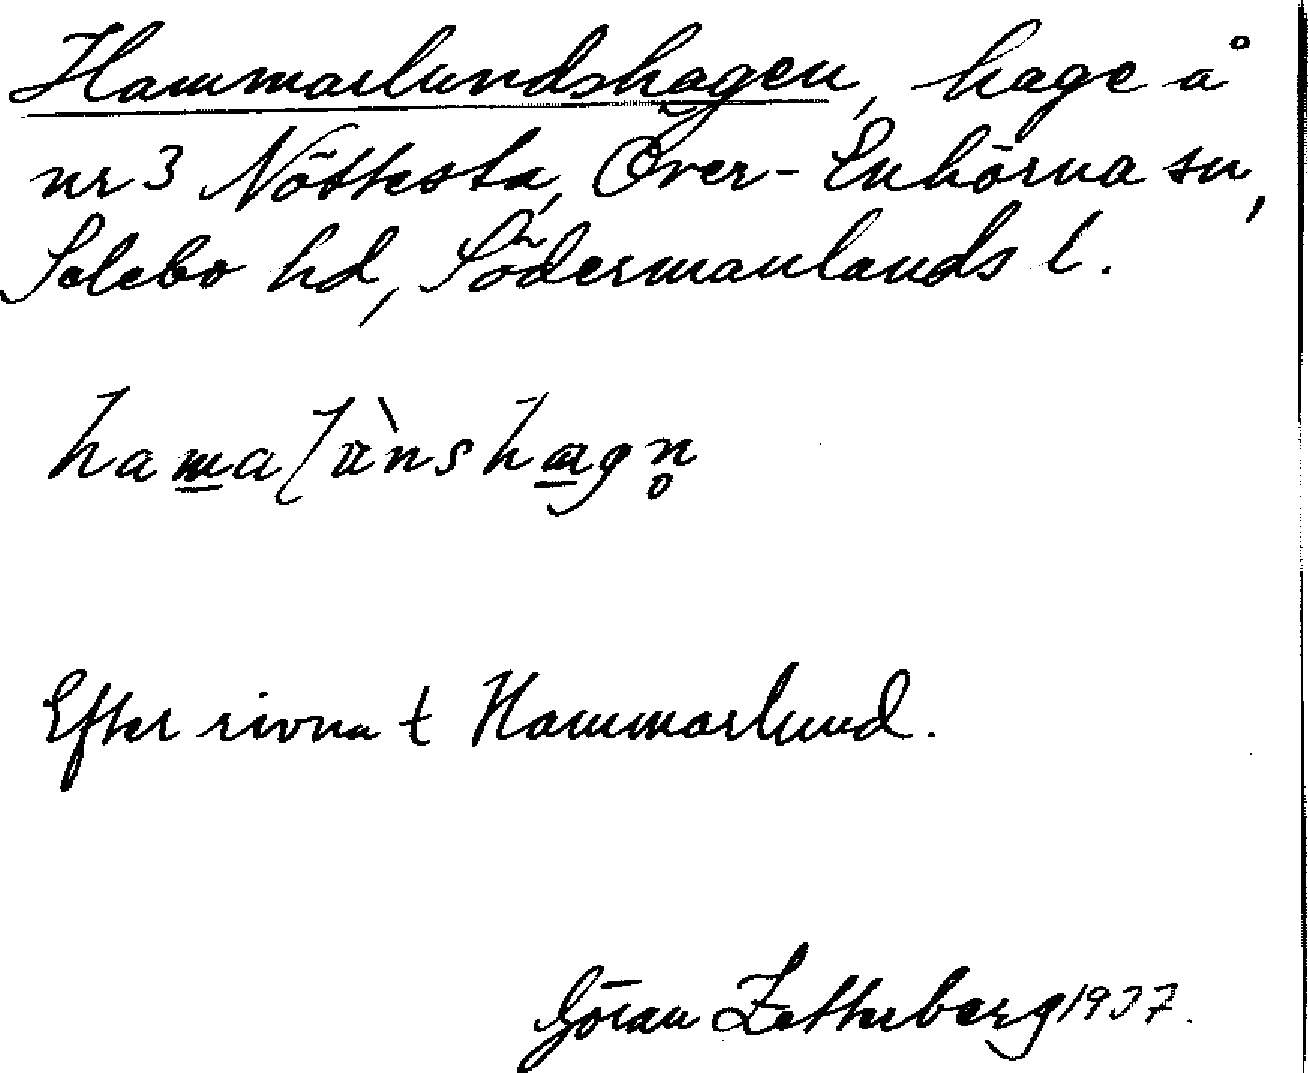 Hammarlundshagen, hage å
nr 3 Nöttesta, Över-Enhörna sn,
Selebo hd, Södermanlands l.
Efter rivna t Hammarlund.
Göran Zetterberg 1937.